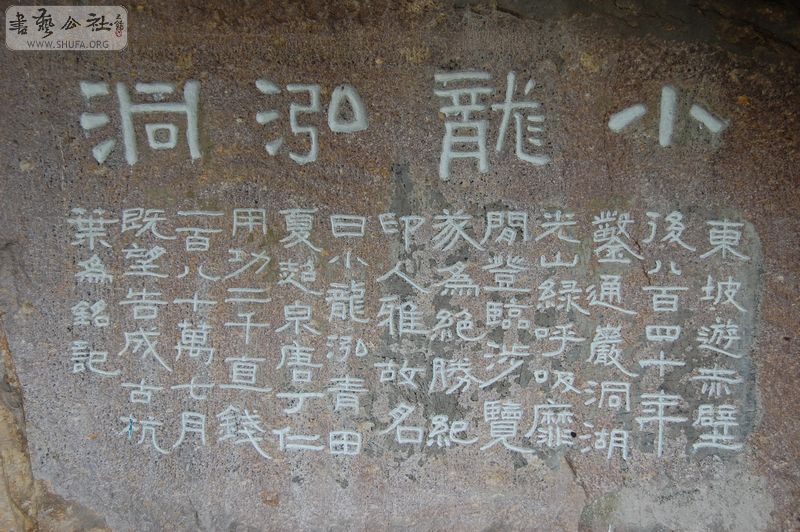 書藝公社
WWW.SHUFA.ORG
小龍泓洞
東坡遊赤壁
後八百四十年
鑿通巖洞湖
光山緑呼吸靡
閒登臨步覽
遂為絕勝紀
印人雅故名
曰小龍泓青田
夏超泉唐丁仁
用功二千直錢
一百八十萬七月
既望告成古杭
葉為銘記